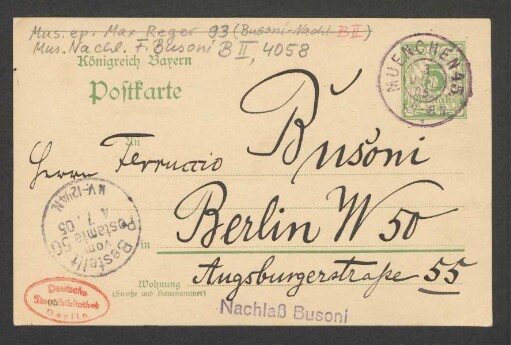 Mus. ep. Max Reger 93 (Busoni-Nachl. B II)
Mus. Nachl. F. Busoni B II, 4058
Königreich Bayern
Postkarte
MUENCHEN 45
05
An
Herrn Ferruccio Busoni
Berlin W 50
in
Augsburgerstraße 55
Wohnung
(Straße und Hausnummer)
Bestellt
vom
Postamte 50
4. 7. 05
Deutsche
Staatsbibliothek
Berlin
Nachlaß Busoni